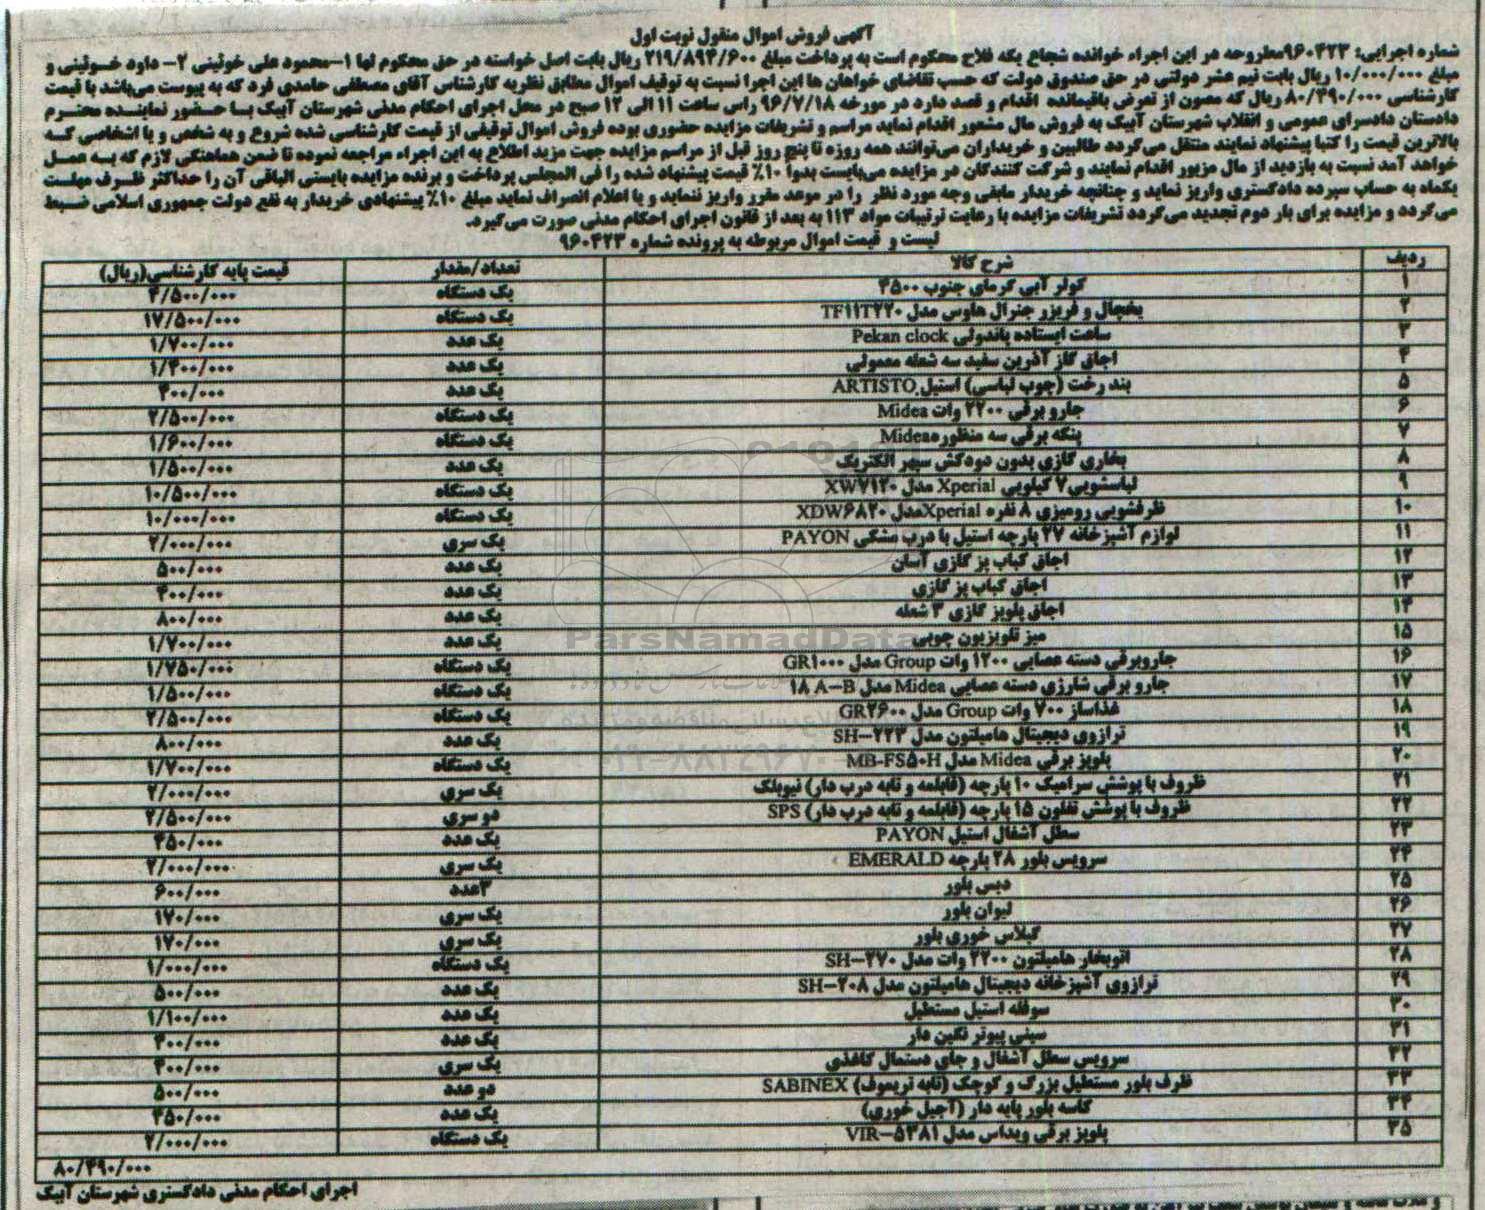 آگهی فروش اموال منقول نوبت اول
شماره اجرایی: ۹۶۰۴۲۳مطروحه در این اجراء خوانده شجاع یکه فلاح محکوم است به پرداخت مبلغ ۲۱۹/۸۹۴/۶۰۰ ریال بابت اصل خواسته در حق محکوم لها ۱-محمود علی خوئینی ۲- داود خوئینی و
مبلغ ۱۰/۰۰۰/۰۰۰ ریال بابت نیم عشر دولتی در حق صندوق دولت که حسب تقاضای خواهان ها این اجرا نسبت به توقیف اموال مطابق نظریه کارشناس آقای مصطفی حامدی فرد که به پیوست می‌باشد با قیمت
کارشناسی ۸۰/۴۹۰/۰۰۰ ریال که مصون از تعرض باقیمانده اقدام و قصد دارد در مورخه ۹۶/۷/۱۸ راس ساعت ۱۱ الی ۱۲ صبح در محل اجرای احکام مدنی شهرستان آبیک با حضور نماینده محترم
دادستان دادسرای عمومی و انقلاب شهرستان آبیک به فروش مال مشعور اقدام نماید مراسم و تشریفات مزایده حضوری بوده فروش اموال توقیفی از قیمت کارشناسی شده شروع و به شخص و یا اشخاصی که
بالاترین قیمت را کتبا پیشنهاد نمایند منتقل می‌گردد طالبین و خریداران می‌توانند همه روزه تا پنج روز قبل از مراسم مزایده جهت مزید اطلاع به این اجراء مراجعه نموده تا ضمن هماهنگی لازم که به عمل
خواهد آمد نسبت به بازدید از مال مزبور اقدام نمایند و شرکت کنندگان در مزایده می‌بایست بدوا ۱۰٪ قیمت پیشنهاد شده را فی المجلس پرداخت و برنده مزایده بایستی الباقی آن را حداکثر ظرف مهلت
یکماه به حساب سپرده دادگستری واریز نماید و چنانچه خریدار مابقی وجه مورد نظر را در موعد مقرر واریز ننماید و یا اعلام انصراف نماید مبلغ ۱۰٪ پیشنهادی خریدار به نفع دولت جمهوری اسلامی ضبط
می‌گردد و مزایده برای بار دوم تجدید می‌گردد تشریفات مزایده با رعایت ترتیبات مواد ۱۱۳ به بعد از قانون اجرای احکام مدنی صورت می‌گیرد.
لیست و قیمت اموال مربوطه به پرونده شماره ۹۶۰۴۲۳
ردیف شرح کالا تعداد/مقدار قیمت پایه کارشناسی(ریال)
۱ کولر آبی گرمای جنوب ۴۵۰۰ یک دستگاه ۴/۵۰۰/۰۰۰
۲ یخچال و فریزر جنرال هاوس مدل TF۱۱T۲۲۰ یک دستگاه ۱۷/۵۰۰/۰۰۰
۳ ساعت ایستاده پاندولی Pekan clock یک عدد ۱/۷۰۰/۰۰۰
۴ اجاق گاز آذرین سفید سه شعله معمولی یک عدد ۱/۴۰۰/۰۰۰
۵ بند رخت (چوب لباسی) استیل ARTISTO یک عدد ۴۰۰/۰۰۰
۶ جارو برقی ۲۲۰۰ وات Midea یک دستگاه ۲/۵۰۰/۰۰۰
۷ پنکه برقی سه منظورهMidea یک دستگاه ۱/۶۰۰/۰۰۰
۸ بخاری گازی بدون دودکش سپهر الکتریک یک عدد ۱/۵۰۰/۰۰۰
۹ لباسشویی۷ کیلویی Xperial مدل XW۷۱۲۰ یک دستگاه ۱۰/۵۰۰/۰۰۰
۱۰ ظرفشویی رومیزی ۸ نفره Xperialمدل XDW۶۸۲۰ یک دستگاه ۱۰/۰۰۰/۰۰۰
۱۱ لوازم آشپزخانه ۲۷ پارچه استیل با درب مشکی PAYON یک سری ۲/۰۰۰/۰۰۰
۱۲ اجاق کباب پز گازی آسان یک عدد ۵۰۰/۰۰۰
۱۳ اجاق کباب پز گازی یک عدد ۴۰۰/۰۰۰
۱۴ اجاق پلوپز گازی ۳ شعله یک عدد ۸۰۰/۰۰۰
۱۵ میز تلویزیون چوبی یک عدد ۱/۷۰۰/۰۰۰
۱۶ جاروبرقی دسته عصایی ۱۲۰۰ وات Group مدل GR۱۰۰۰ یک دستگاه ۱/۷۵۰/۰۰۰
۱۷ جارو برقی شارژی دسته عصایی Midea مدل ۱۸ A-B یک دستگاه ۱/۵۰۰/۰۰۰
۱۸ غذاساز ۷۰۰ وات Group مدل GR۲۶۰۰ یک دستگاه ۲/۵۰۰/۰۰۰
۱۹ ترازوی دیجیتال هامیلتون مدل SH-۲۲۳ یک عدد ۸۰۰/۰۰۰
۲۰ پلوپز برقی Midea مدل MB-FS۵۰H یک دستگاه ۱/۷۰۰/۰۰۰
۲۱ ظروف با پوشش سرامیک ۱۰ پارچه (قابلمه و تابه درب دار) نیوبلک یک سری ۲/۰۰۰/۰۰۰
۲۲ ظروف با پوشش تفلون ۱۵ پارچه (قابلمه و تابه درب دار) SPS دو سری ۲/۵۰۰/۰۰۰
۲۳ سطل آشغال استیل PAYON یک عدد ۴۵۰/۰۰۰
۲۴ سرویس بلور ۲۸ پارچه EMERALD یک سری ۲/۰۰۰/۰۰۰
۲۵ دیس بلور ۳عدد ۶۰۰/۰۰۰
۲۶ لیوان بلور یک سری ۱۷۰/۰۰۰
۲۷ گیلاس خوری بلور یک سری ۱۷۰/۰۰۰
۲۸ اتوبخار هامیلتون ۲۲۰۰ وات مدل SH-۲۷۰ یک دستگاه ۱/۰۰۰/۰۰۰
۲۹ ترازوی آشپزخانه دیجیتال هامیلتون مدل SH-۲۰۸ یک عدد ۵۰۰/۰۰۰
۳۰ سوفله استیل مستطیل یک عدد ۱/۱۰۰/۰۰۰
۳۱ سینی پیوتر نگین دار یک عدد ۴۰۰/۰۰۰
۳۲ سرویس سطل آشغال و جای دستمال کاغذی یک سری ۴۰۰/۰۰۰
۳۳ ظرف بلور مستطیل بزرگ و کوچک (تابه تریموف) SABINEX دو عدد ۵۰۰/۰۰۰
۳۴ کاسه بلور پایه دار (آجیل خوری) یک عدد ۴۵۰/۰۰۰
۳۵ پلوپز برقی ویداس مدل VIR-۵۳۸۱ یک دستگاه ۲/۰۰۰/۰۰۰
۸۰/۴۹۰/۰۰۰
اجرای احکام مدنی دادگستری شهرستان آبیک
ParsNamadData